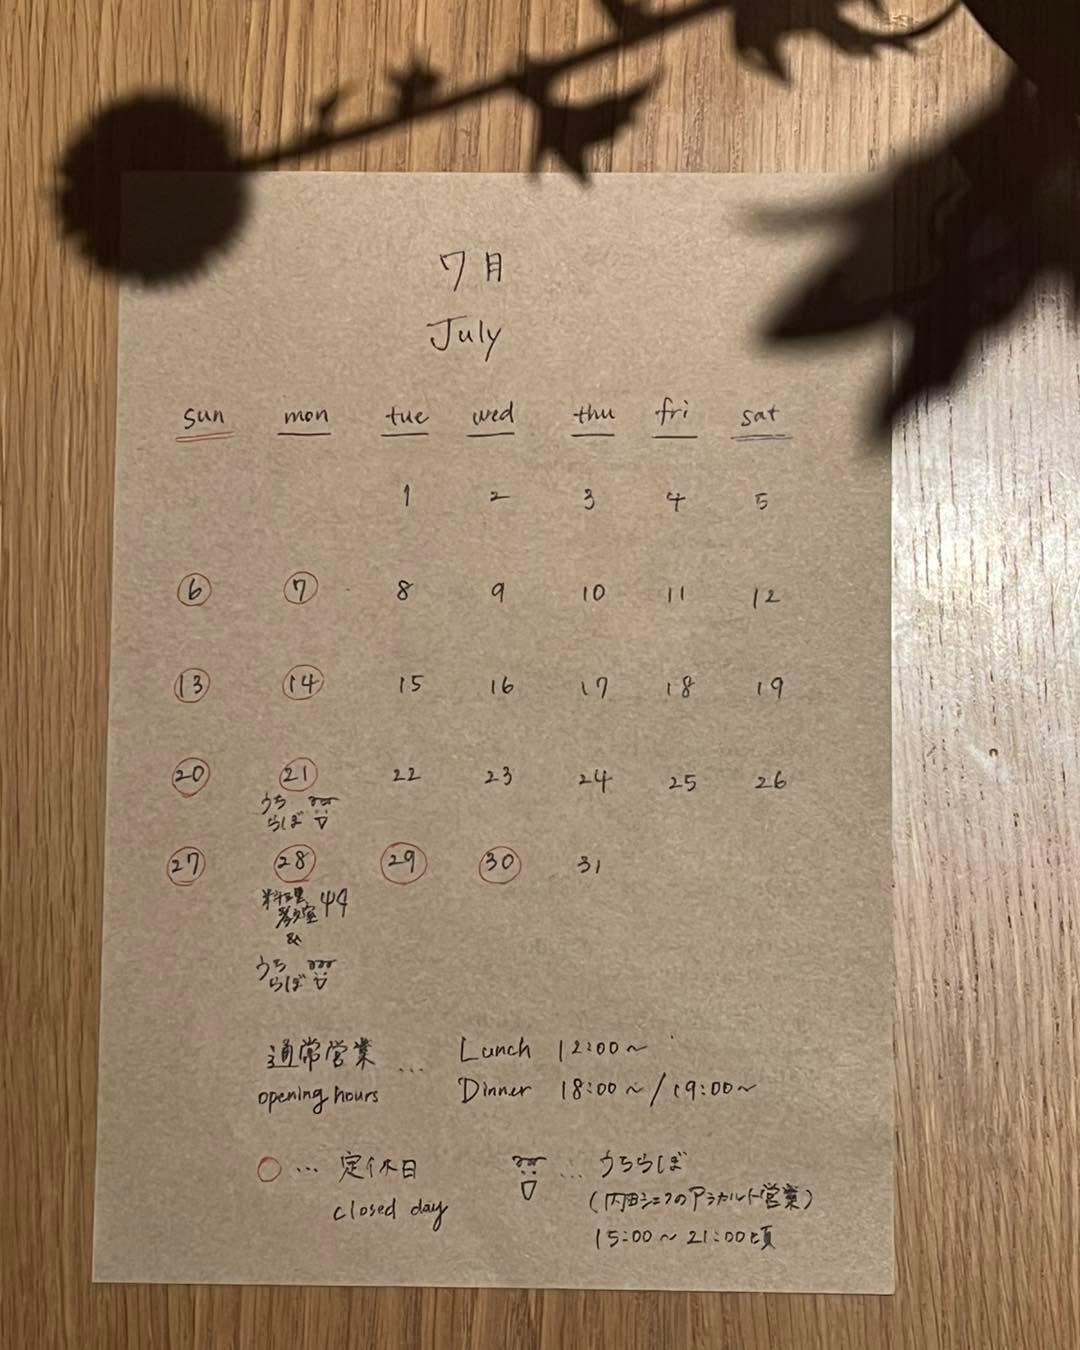 7月
July
sun mon tue wed thu fri sat
1 2 3 4 5
6 7 8 9 10 11 12
13 14 15 16 17 18 19
20 21 22 23 24 25 26
うち
らぼ
27 28 29 30 31
料理
教室
&
うち
らぼ
通常営業 ... Lunch 12:00～
opening hours Dinner 18:00～/19:00～
○ ... 定休日
closed day
... うちらぼ
(内田シェフのアラカルト営業)
15:00～21:00頃